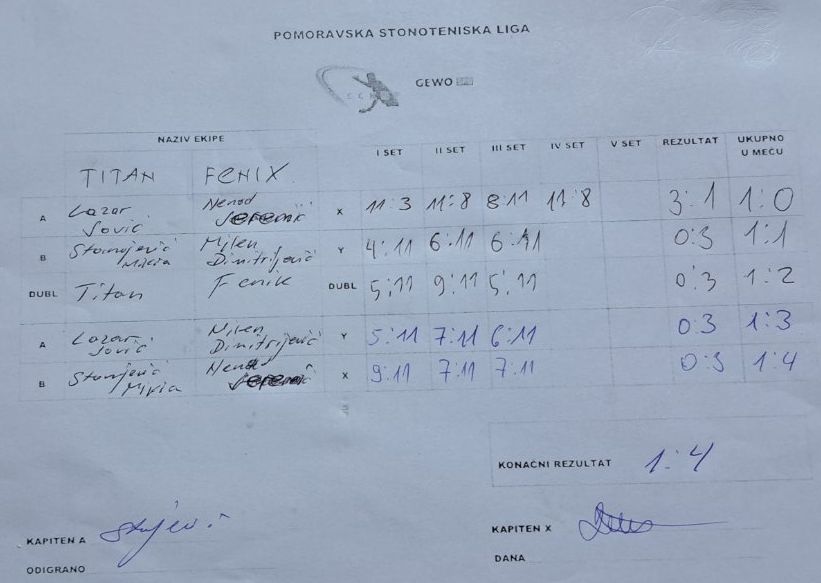 POMORAVSKA STONOTENISKA LIGA
GEWO
NAZIV EKIPE I SET II SET III SET IV SET V SET REZULTAT UKUPNO U MEČU
TITAN FENIX
A Lazar Jović Nenad X 11:3 11:8 8:11 11:8 3:1 1:0
B Stanojević Milen Dimitrijević Y 4:11 6:11 6:11 0:3 1:1
DUBL Titan Fenik DUBL 5:11 9:11 5:11 0:3 1:2
A Lazar Jović Milen Dimitrijević Y 5:11 7:11 6:11 0:3 1:3
B X 9:11 7:11 7:11 0:3 1:4
KONAČNI REZULTAT 1:4
KAPITEN A KAPITEN X
ODIGRANO DANA